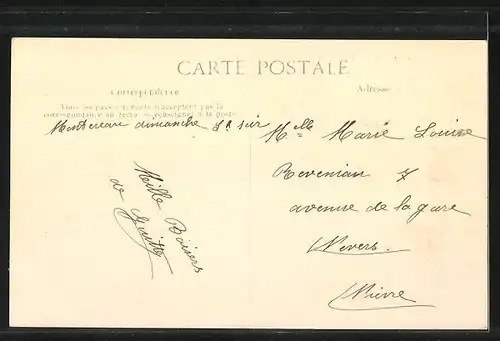 CARTE POSTALE
Correspondance
Adresse
Tous les pays étrangers n'acceptent pas la
correspondance au recto. se renseigner à la poste
Montereau dimanche soir
Mille Baisers
de
Melle Marie Louise
7
avenue de la gare
Nevers.
Nièvre